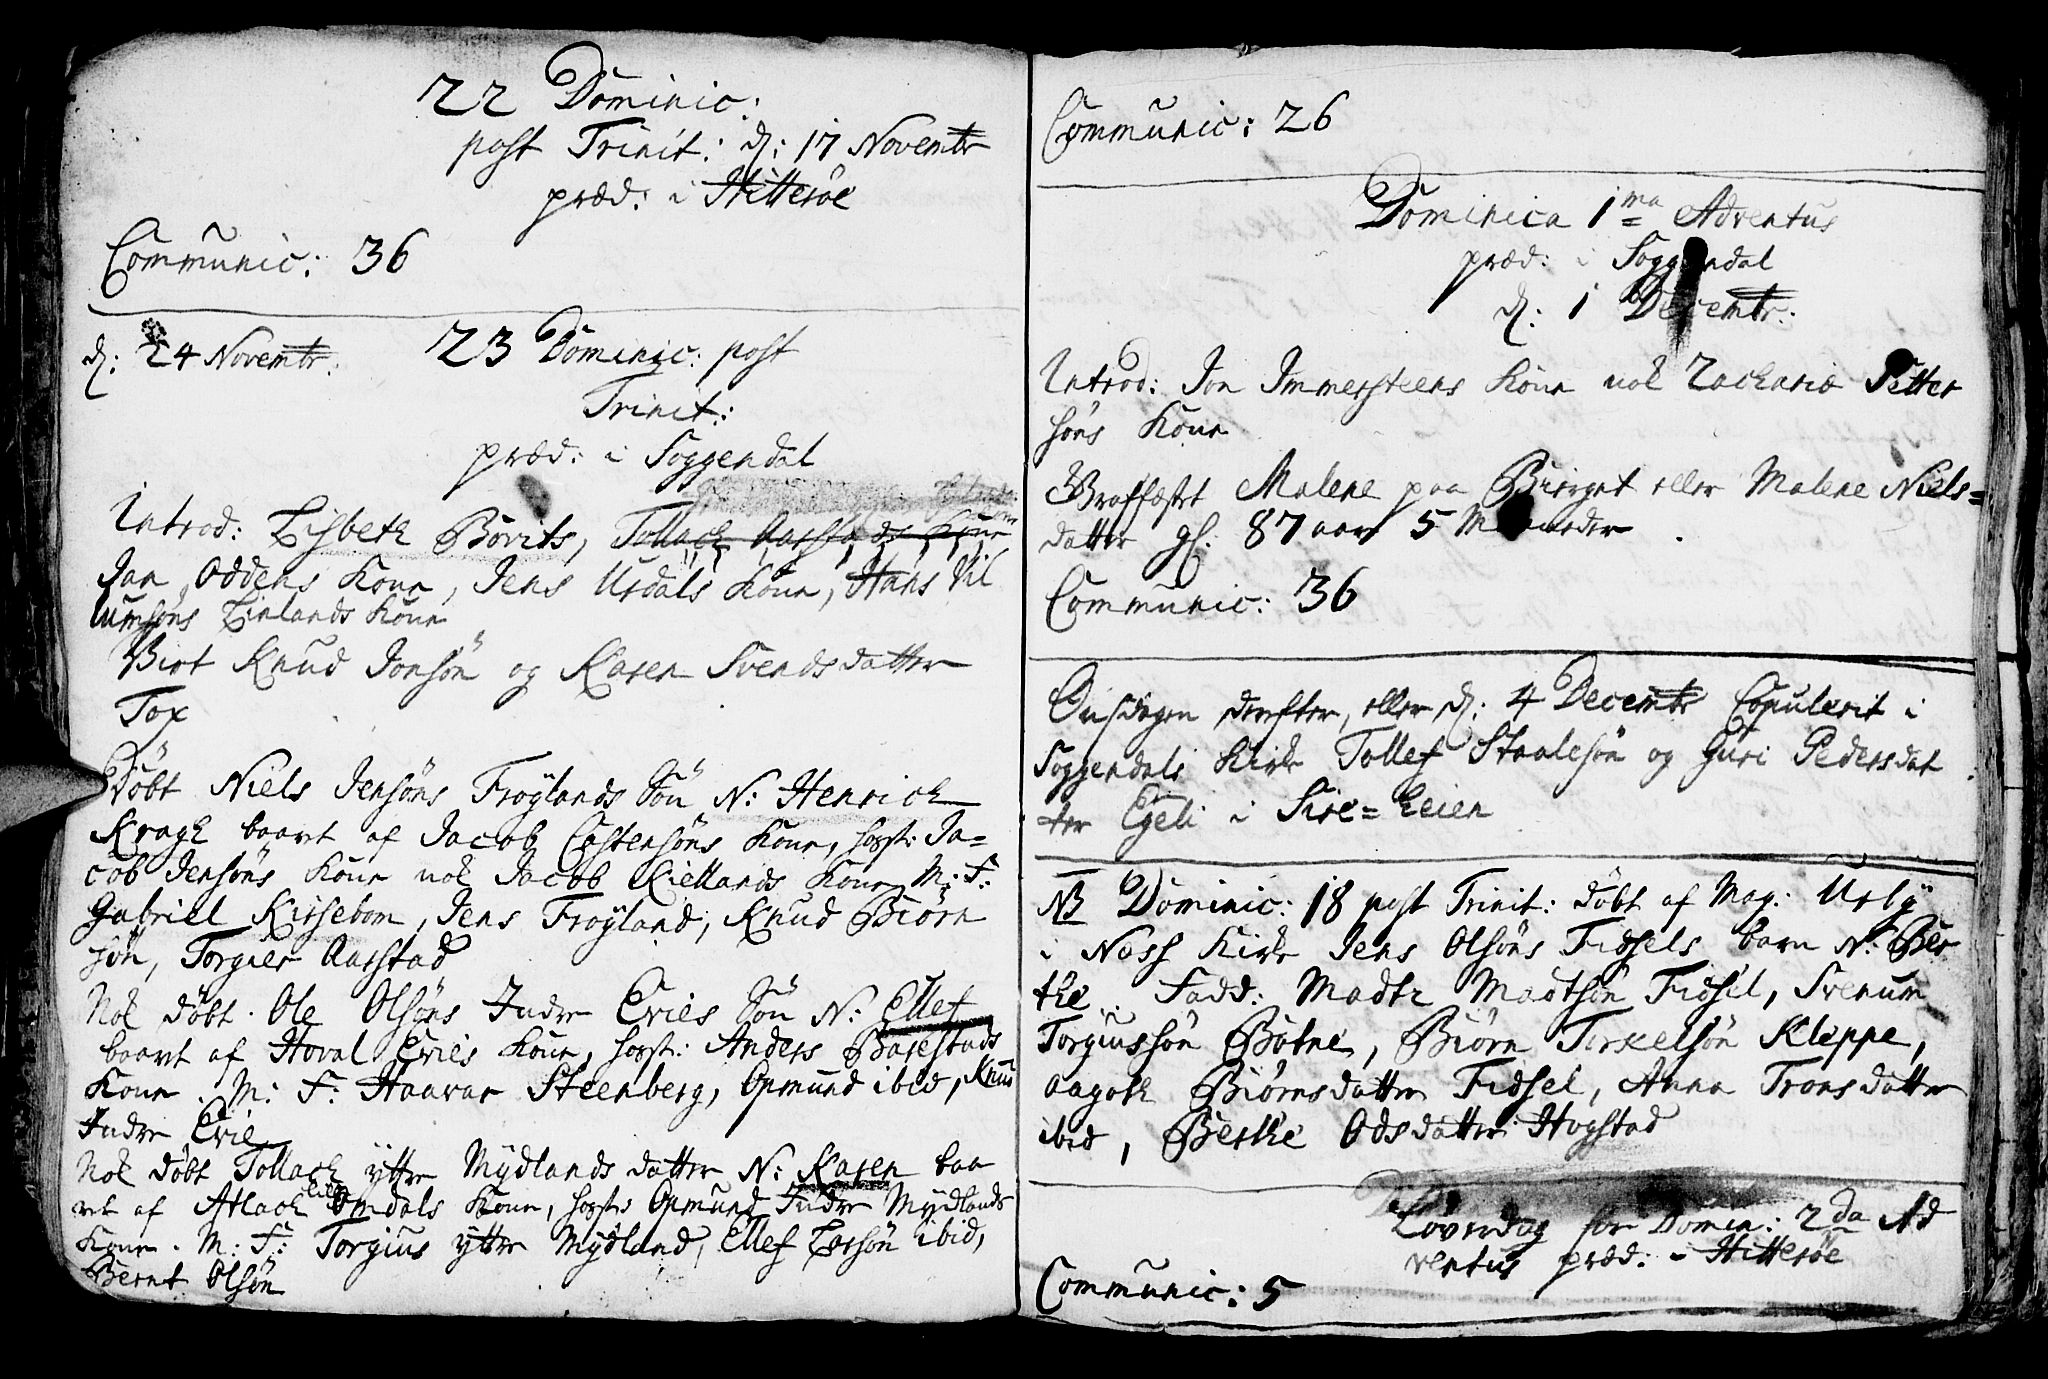 22 Dominic:
post Trinit: d: 17 Novembr
præd: i Hitterøe
Communic: 36
d: 24 Novembr: 23 Dominic: post
Trinit:
præd: i Soggendal
Introd: Lisbeth Børits, Tollach Aarstads Kone
Jan Oddens Kone, Jens Urdals Kone, Hans Vil
lumsøns Linlands Kone
Viet Knud Jonsøn og Karen Svendsdatter
Tox
Døbt Niels Jensøns Frøylands Søn N: Henrich
Kragh baaret af Jacob Castensøns Kone, hosst: Ja=
cob Jensøns Kone nok Jacob Kiellands Kone M: F:
Gabriel Kirsebom, Jens Frøyland, Knud Biørn
søn, Torgier Aarstad
Nok døbt Ole Olsøns Indre Eries Søn N: Ellef
baaret af Hoval Eries Kone, hosst: Anders Barestads
Kone. M: F: Haavar Steenberg, Opmund ibid, Knud
Indre Erie
Nok døbt Tollach yttre Mydlands datter N: Karen baa
ret af Atlach lille Omdals Kone, hosst: Opmund Indre Mydlands
Kone. M: F: Torgius yttre Mydland, Ellef Larsøn ibid,
Bernt Olsøn
Communic: 26
Dominica 1ma Adventus
præd: i Soggendal
d: 1 Decembr:
Introd: Jon Immersteens Kone nok Zachariæ Petter
søns Kone
Graffæstet Malene paa Bierget eller Malene Niels=
datter gl: 87 aar 5 Maaneder
Communic: 36
Onsdagen derefter, eller d: 4 Decembr Copulerit i
Soggendals Kirke Tollef Staalesøn og Guri Pedersdat
ter Egeli i Sire=Leien
NB Dominic: 18 post Trinit: døbt af Mag: Urby
i Næss Kirke Jens Olsøns Fidsels barn N: Ber
the. Fadd: Madtz Madtsøn Fidsel, Svenum
Torgiussøn Botne, Biørn Torkelsøn Kleppe,
Aagoth Biørnsdatter Fidsel, Anna Tronsdatter
ibid, Berthe Odsdatter Hogstad
Løverdag for Domin: 2da Ad
ventus præd: i Hitterøe
Communic: 5